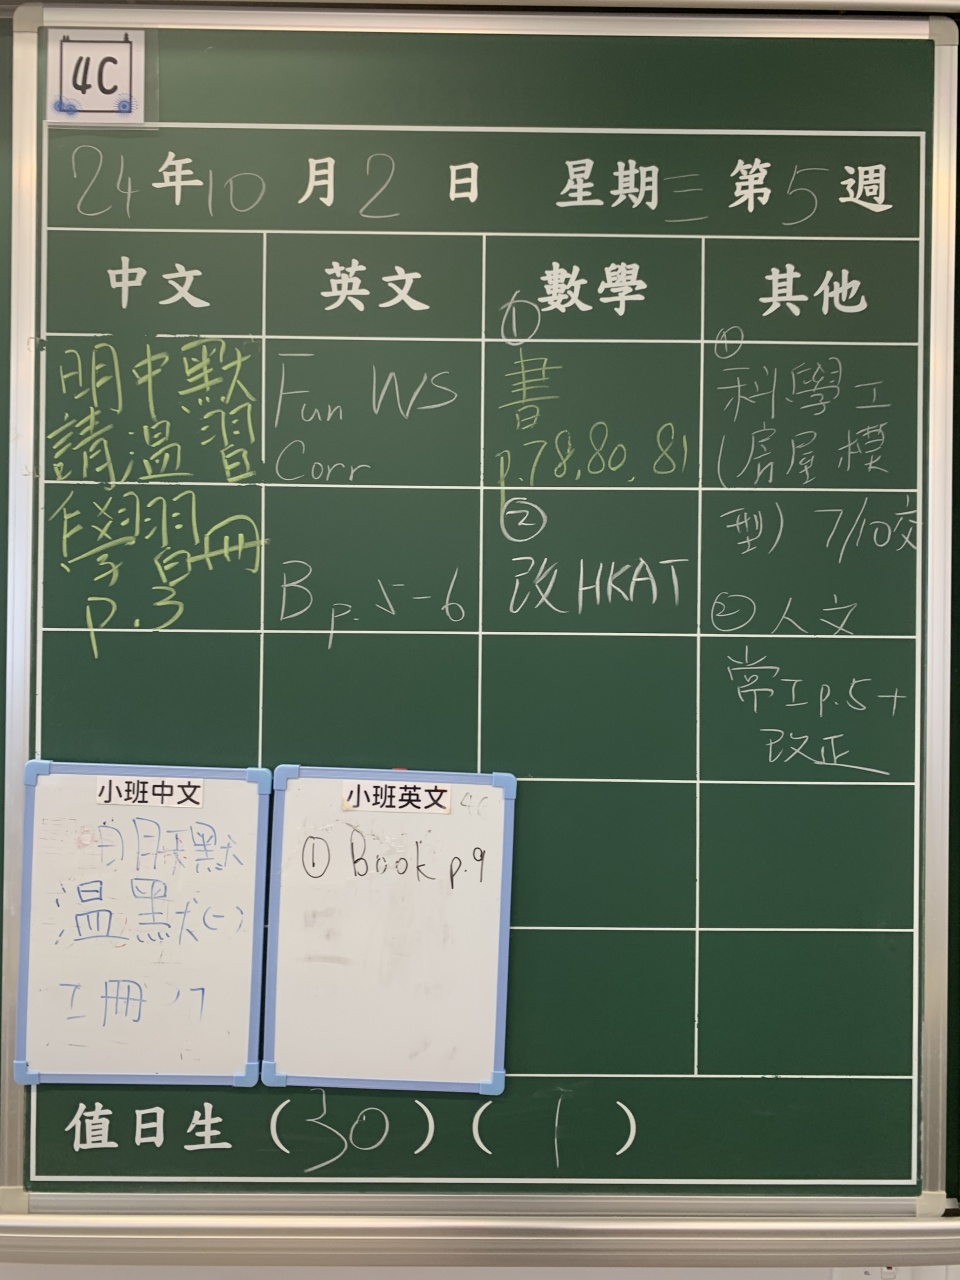 4C
24年10月2日 星期三 第5週
中文 英文 數學 其他
明中默
請溫習
學習冊
p.3
Fun WS
Corr
B p.5-6
①
書
p.78,80,81
②
改HKAT
①
科學工
(房屋模
型) 7/10交
②人文
常工p.5+
改正
小班中文
明默
溫默(一)
工冊
小班英文
4C
① Book p.9
值日生(30)(1)